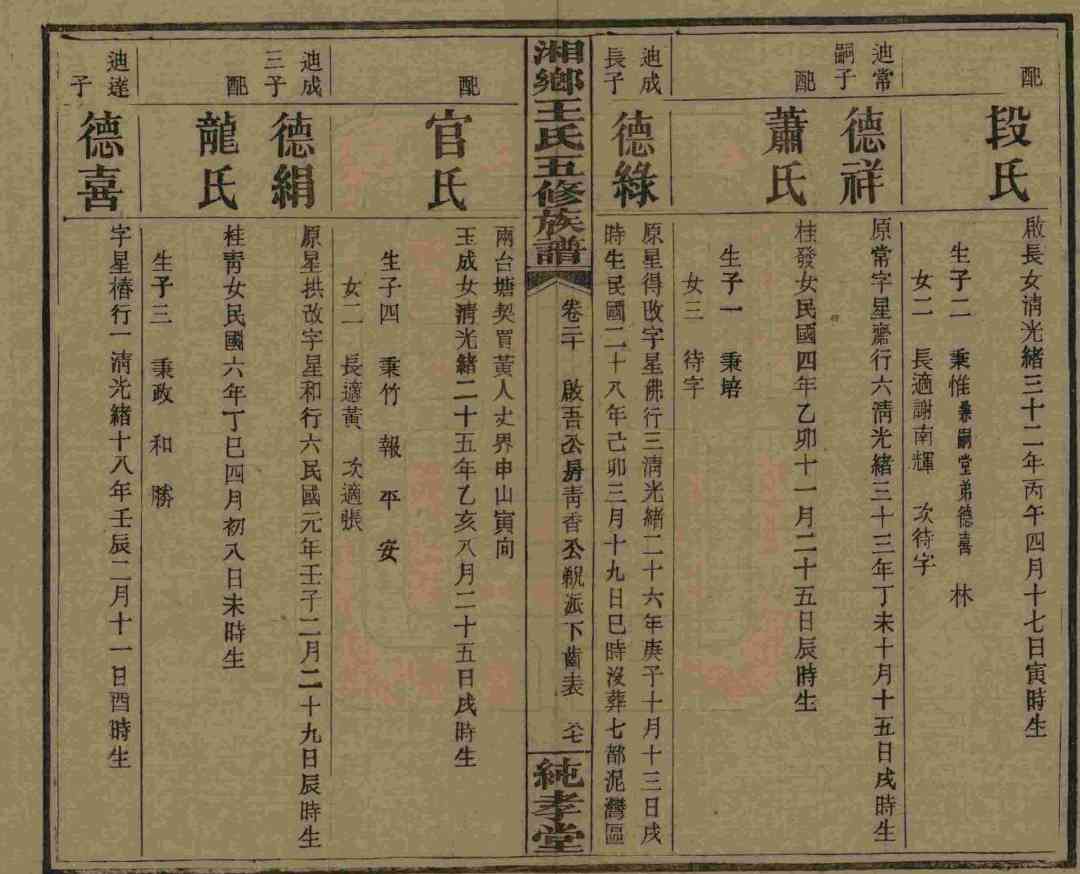 配
段氏
啟長女清光緒三十二年丙午四月十七日寅時生
生子二　秉惟兼嗣堂弟德喜　林
女二　長適謝南輝　次待字
迪常
嗣子
德祥
原常字星齋行六清光緒三十三年丁未十月十五日戌時生
配
蕭氏
桂發女民國四年乙卯十一月二十五日辰時生
生子一　秉培
女三　待字
迪成
長子
德綠
原星得改字星佛行三清光緒二十六年庚子十月十三日戌
時生民國二十八年己卯三月十九日巳時沒葬七都泥灣區
湘鄉王氏五修族譜
卷二十　啟吾公房青香公貺派下齒表
純孝堂
兩台塘契買黃人丈界申山寅向
配
官氏
玉成女清光緒二十五年乙亥八月二十五日戌時生
生子四　秉竹　報　平　安
女二　長適黃　次適張
迪成
三子
德絹
原星拱改字星和行六民國元年壬子二月二十九日辰時生
配
龍氏
桂靑女民國六年丁巳四月初八日未時生
生子三　秉政　和　勝
迪達
子
德喜
字星椿行一清光緒十八年壬辰二月十一日酉時生